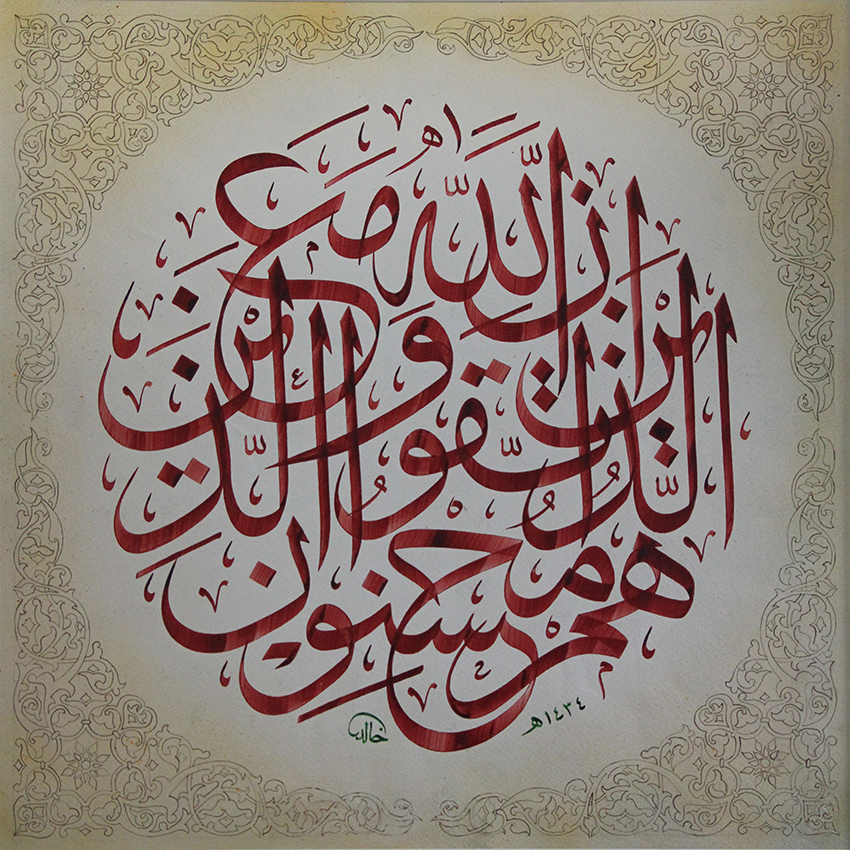 إِنَّ اللَّهَ مَعَ الَّذِينَ اتَّقَوا وَّالَّذِينَ هُم مُّحْسِنُونَ
خالد
١٤٣٤هـ